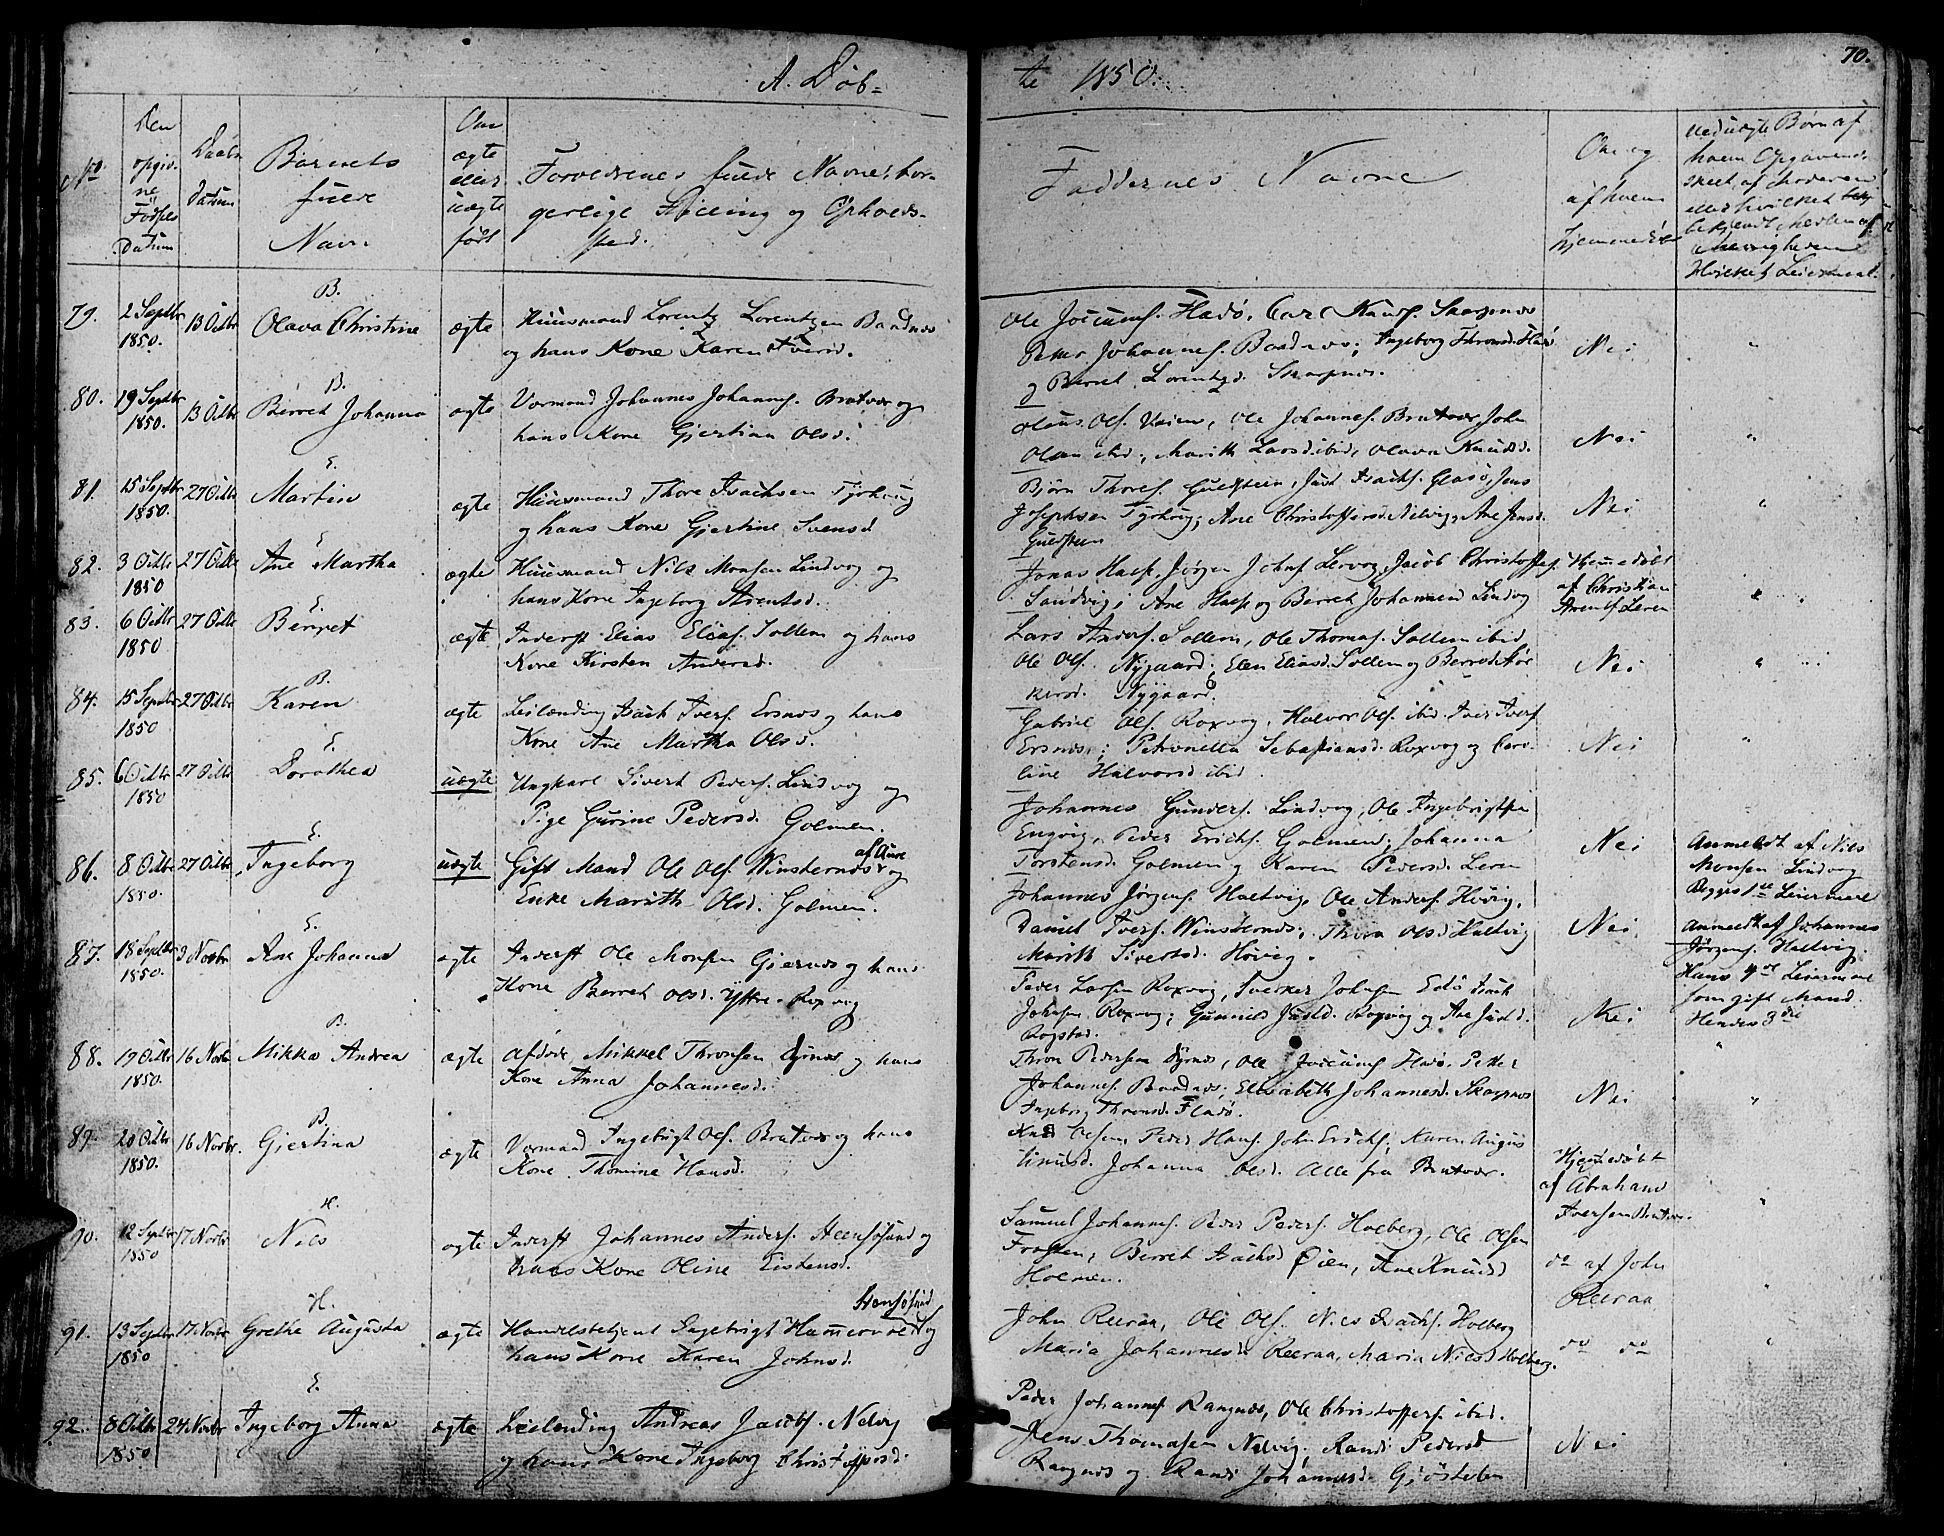 A. Døb-
te 1850.
70.
No
Den opgivne Fødsels Datum
Daabs Datum
Barnets fulde Navn
Om ægte eller uægte født
Forældrenes fulde Navne, borgerlige Stilling og Opholdssted.
Faddernes Navne
Om og af hvem hjemmedøbt
Ved uægte Børn af hvem Opgavende skeet, af Moderen eller hvilket
Hvilket Leiermaal.
B.
79. 2 Septbr 1850. 13 Octbr Olava Christine ægte Huusmand Lorentz Lorentzen Baadnæs
og hans Kone Karen Iversd.
Ole Jocums. Fladø, Carl Knuds. Skarpnæs
Peter Johannes. Baadnæs; Ingeborg Thronds. Fladø
og Berret Lorentzd. Skarpnæs. Nei "
B.
80. 19 Septbr 1850. 13 Octbr Berret Johanna ægte Vormand Johannes Johannes. Brutvær og
hans Kone Gjertine Olsd.
Olaus Ols. Veien, Ole Johannes. Brutvær, John
Olsen ibid; Marith Larsd. ibid, Olava Knudsd. Nei "
E.
81. 15 Septbr 1850. 27 Octbr Martin ægte Huusmand Thore Isachsen Tyrhoug
og hans Kone Gjertine Svensd.
Bjørn Thores. Guldsteen, Just Isachs. Glasø, Jens
Josephsen Tyrhoug; Ane Christoffersd. Nelvig, Ane Jensd.
Guldsteen Nei "
E.
82. 3 Octbr 1850 27 Octbr Ane Martha ægte Huusmand Nils Monsen Lindvog og
hans Kone Ingeborg Arentsd.
Jonas Hasp, Jørgen Johns. Lervog, Jacob Christoffers.
Sandvig; Ane Hasp og Berret Johannesd Lindvog
Hjemmedøbt af Christian Arents. Leren "
E.
83. 6 Octbr 1850 27 Octbr Berret ægte Inderst Elias Elias. Sollem og hans
Kone Kirsten Andersd.
Lars Anders. Sollem, Ole Thomas. Sollem ibid,
Ole Ols. Nygaard; Elen Eliasd. Sollem og Berret
Nygaard Nei "
B.
84. 15 Septbr 1850 27 Octbr Karen ægte Leilænding Isach Ivers. Ersnæs og hans
Kone Ane Martha Olsd.
Gabriel Ols. Roxvog, Halvor Ols. ibid. Iver Ivers
Ersnæs; Petronella Sebastiansd. Roxvog og Caro-
line Halvorsd ibid. Nei "
E.
85. 6 Octbr 1850 27 Octbr Dorothea uægte Ungkarl Sivert Peders. Lindvog og
Pige Gurine Pedersd. Golmen.
Johannes Gunders. Lindvog, Ole Ingebrigtsen
Engvig, Peder Erichs. Golmen; Johanna
Torstensd. Golmen og Karen Pedersd. Leren Nei
Anmeldt af Nils
Monsen Lindvog
Begges 1ste Leiermaal
E.
86. 8 Octbr 1850. 27 Octbr Ingeborg uægte Gift Mand Ole Ols. Winsternæs af Aure og
Enke Marith Olsd. Golmen.
Johannes Jørgens. Haltvig, Ole Anders. Høvig,
Daniel Ivers. Winsternæs; Thora Olsd Haltvig
Marith Sivertsd. Høvig. Nei
Anmeldt af Johannes
Jørgens. Haltvig.
Hans 4de Leiermaal
som gift Mand.
Hendes 3die
E.
87. 18 Septbr 1850. 3 Novbr. Ane Johanna ægte Inderst Ole Monsen Gjernæs og hans
Kone Berret Olsd. Yttre-Roxvog
Peder Larsen Roxvog, Sverker Johnsen Edø Isach
Johnsen Roxvog; Gunnild Justd. Roxvog og Ane Justd.
Rogstad. Nei "
B.
88. 19 Octbr 1850. 16 Novbr Mikka Andrea ægte Afdøde Mikkel Thronsen Dyrnæs og hans
Kone Anna Johannesd.
Thron Pedersen Dyrnæs, Ole Jocums Fladø, Petter
Johannes. Baadnæs; Elisabeth Johannesd. Skarpnæs
Ingeborg Thronsd. Fladø. Nei "
B.
89. 20 Octbr 1850. 16 Novbr. Gjertina ægte Vormand Ingebrigt Ols. Brutvær og hans
Kone Thomine Hansd.
Knud Olsen, Peder Hans. John Erichs; Karen Augus-
tinusd. Johanna Olsd. Alle fra Brutvær.
Hjemmedøbt af Abraham Iversen Brutvær. "
H.
90. 12 Septbr 1850 17 Novbr Nils ægte Inderst Johannes Anders. Steensøsund og
hans Kone Oline Eistensd.
Samuel Johannes. Peder Peders. Holberg, Ole Olsen
Frosten; Berret Isachsd Øien, Ane Knudsd
Holmen.
do af John Reeraa "
H.
91. 13 Septbr 1850 17 Novbr Grethe Augusta ægte Handelsbetjent Ingebrigt Hammervold Stensøsund og
hans Kone Karen Johnsd.
John Reeraa, Ole Ols. Nils Isachs. Holberg
Maria Johannesd. Reeraa, Maria Nilsd Holberg.
do do "
E.
92. 8 Octbr 1850 24 Novbr Ingeborg Anna ægte Leilænding Andreas Jacobs. Nelvig
og hans Kone Ingeborg Christoffersd.
Peder Johannes Rangnæs, Ole Christoffers. ibid.
Jens Thomasen Nelvig. Randi Pedersd
Rangnæs og Randi Johannesd. Gjøstelen Nei